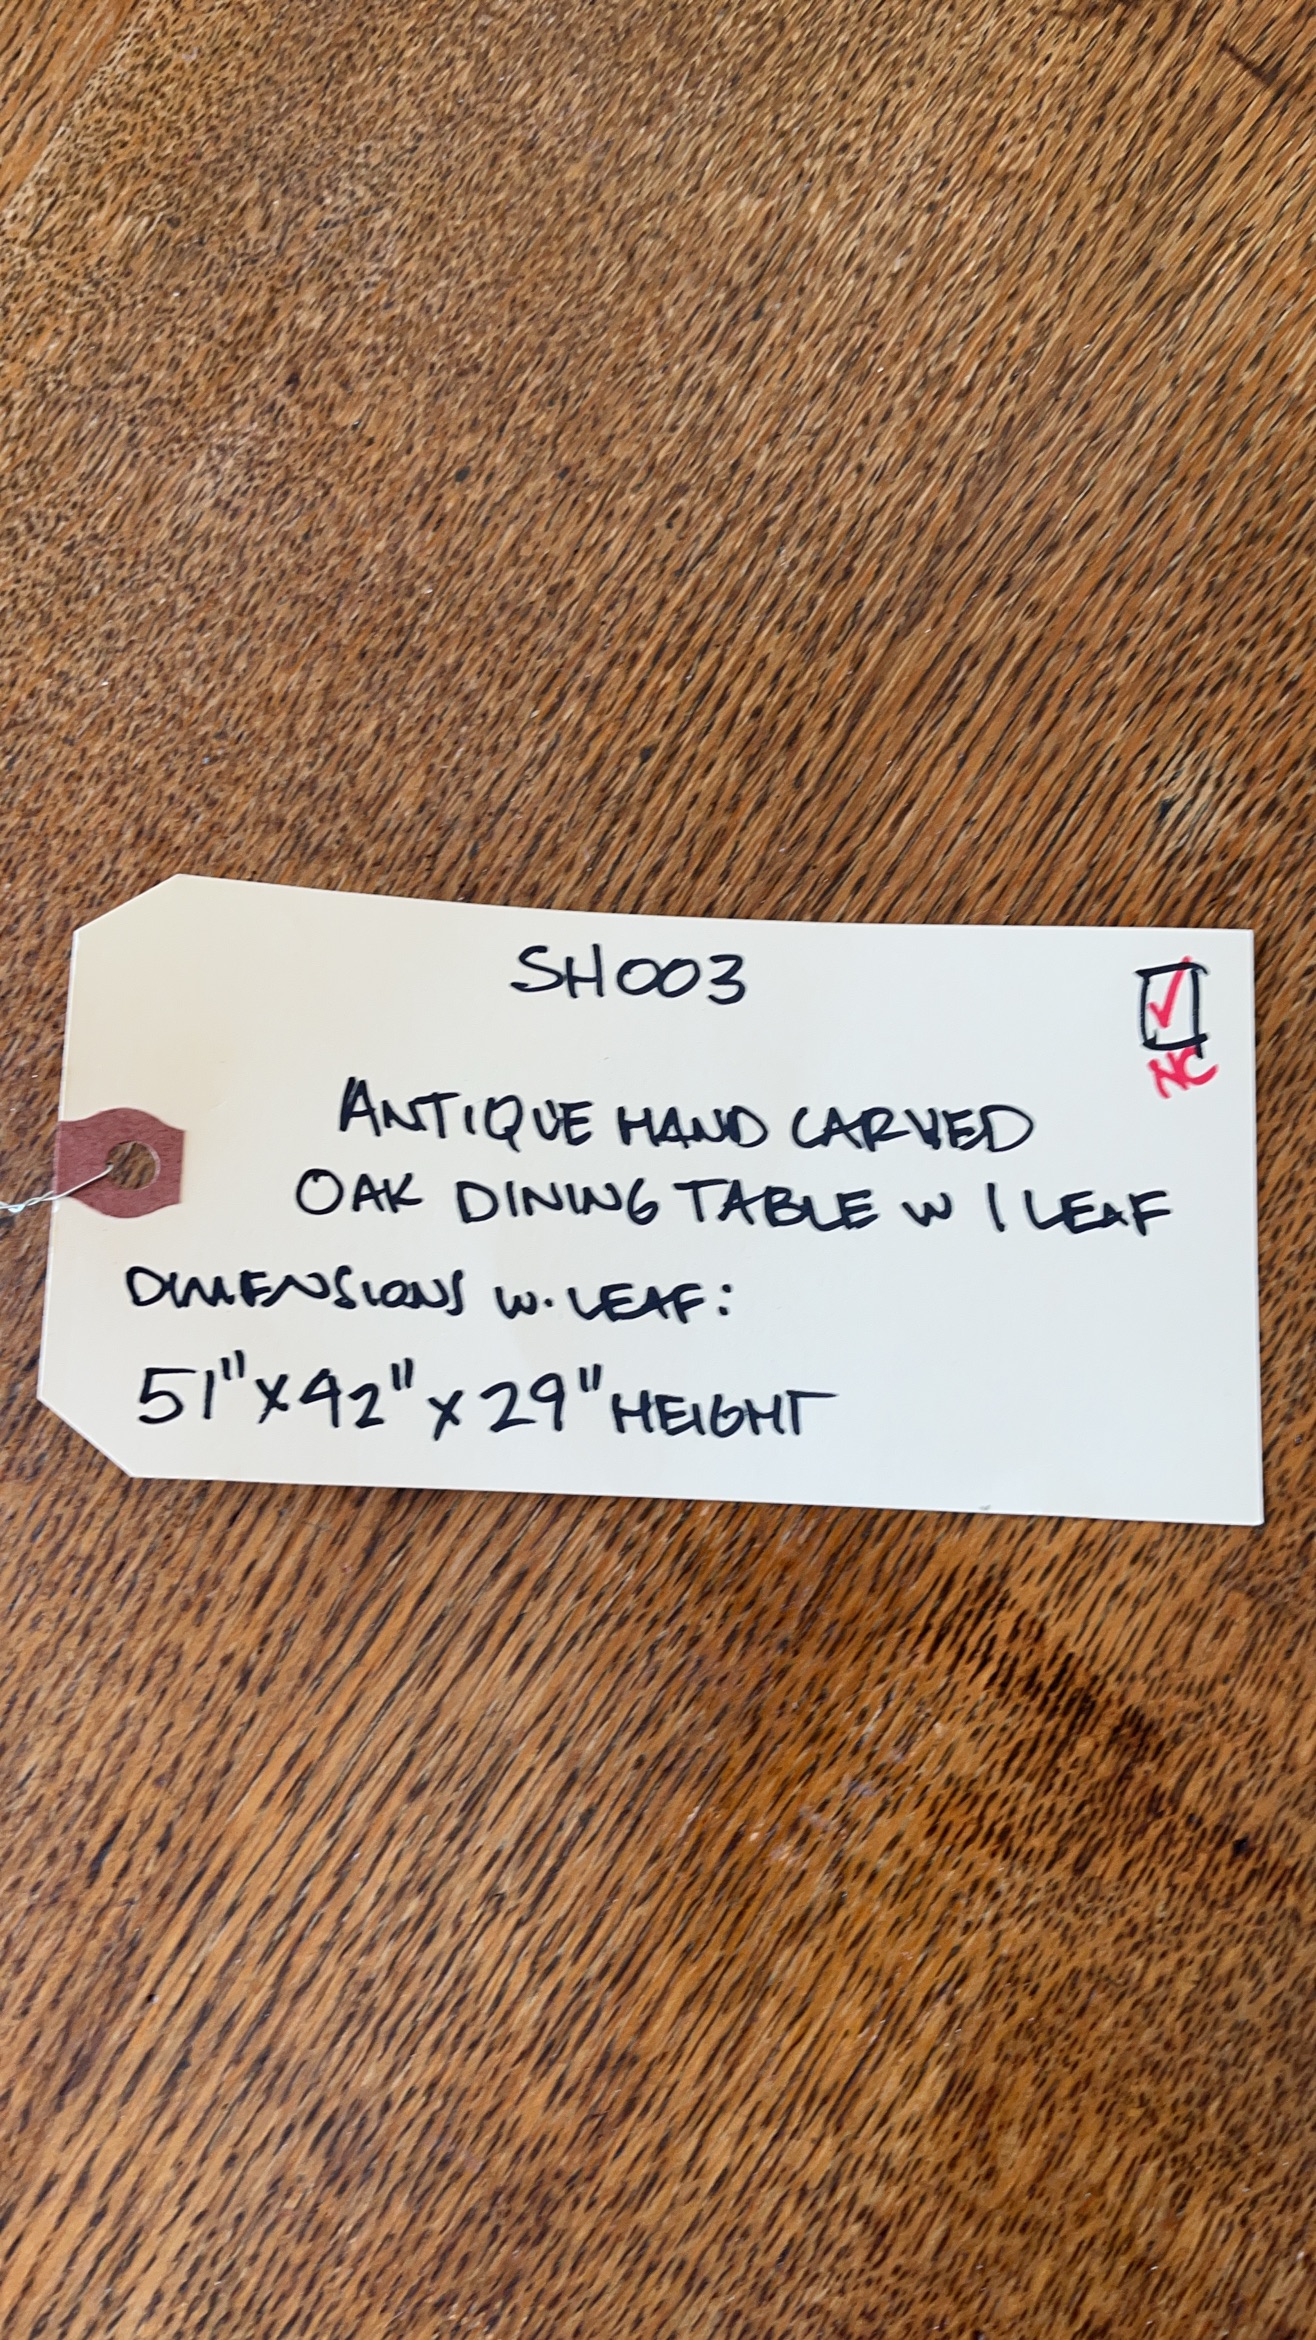 SH003
☑
NC
ANTIQUE HAND CARVED
OAK DINING TABLE W 1 LEAF
DIMENSIONS W. LEAF:
51" X 42" X 29" HEIGHT